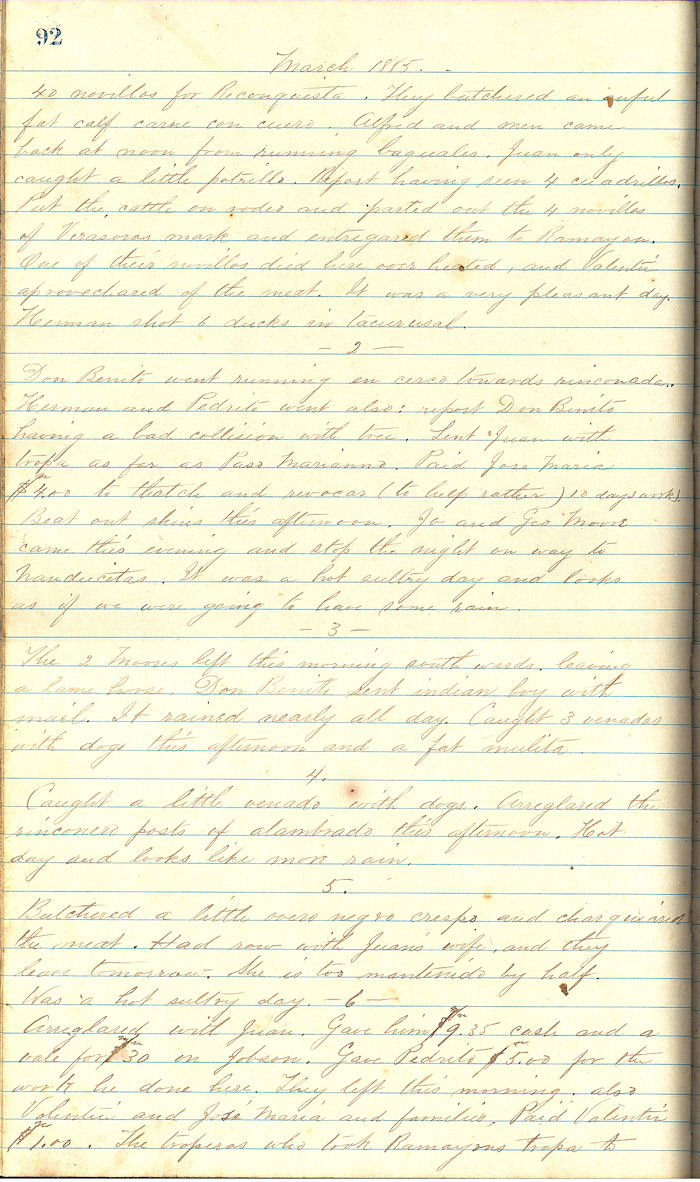 92
March 1885.
40 novillos for Reconquista. They butchered an awful
fat calf carne con cuero. Alfred and men came
back at noon from running baguales. Juan only
caught a little potrillo. Report having seen 4 cuadrillos.
Put the cattle on rodeo and parted out the 4 novillos
of Verasoras mark and entregared them to Ramayon.
One of their novillos died here over heated, and Valentin
aprovechared of the meat. It was a very pleasant day.
Herman shot 6 ducks in tacurusal.
— 2 —
Don Benito went running en cerco towards rinconada.
Herman and Pedrito went also: report Don Benito
having a bad collision with tree. Sent Juan with
tropa as far as Paso Marianno. Paid Jose Maria
$4.00 to thatch and revocar (to help rather) 10 days work).
Beat out skins this afternoon. Jo and Geo Moore
came this evening and stop the night on way to
Nanducitas. It was a hot sultry day and looks
as if we were going to have some rain.
— 3 —
The 2 Moores left this morning south wards. leaving
a lame horse. Don Benito sent indian boy with
mail. It rained nearly all day. Caught 3 venados
with dogs this afternoon and a fat mulita.
4.
Caught a little venado with dogs. Arreglared the
rinconero posts of alambrado this afternoon. Hot
day and looks like more rain.
5.
Butchered a little overo negro crespo and charqueared
the meat. Had row with Juan's wife, and they
leave tomorrow. She is too mantenido by half.
Was a hot sultry day. — 6 —
Arreglared with Juan. Gave him $9.35 cash and a
vale for $30 on Jobson. Gave Pedrito $5.00 for the
work he done here. They left this morning. also
Valentin and José Maria and families. Paid Valentin
$1.00. The troperos who took Ramayons tropa to